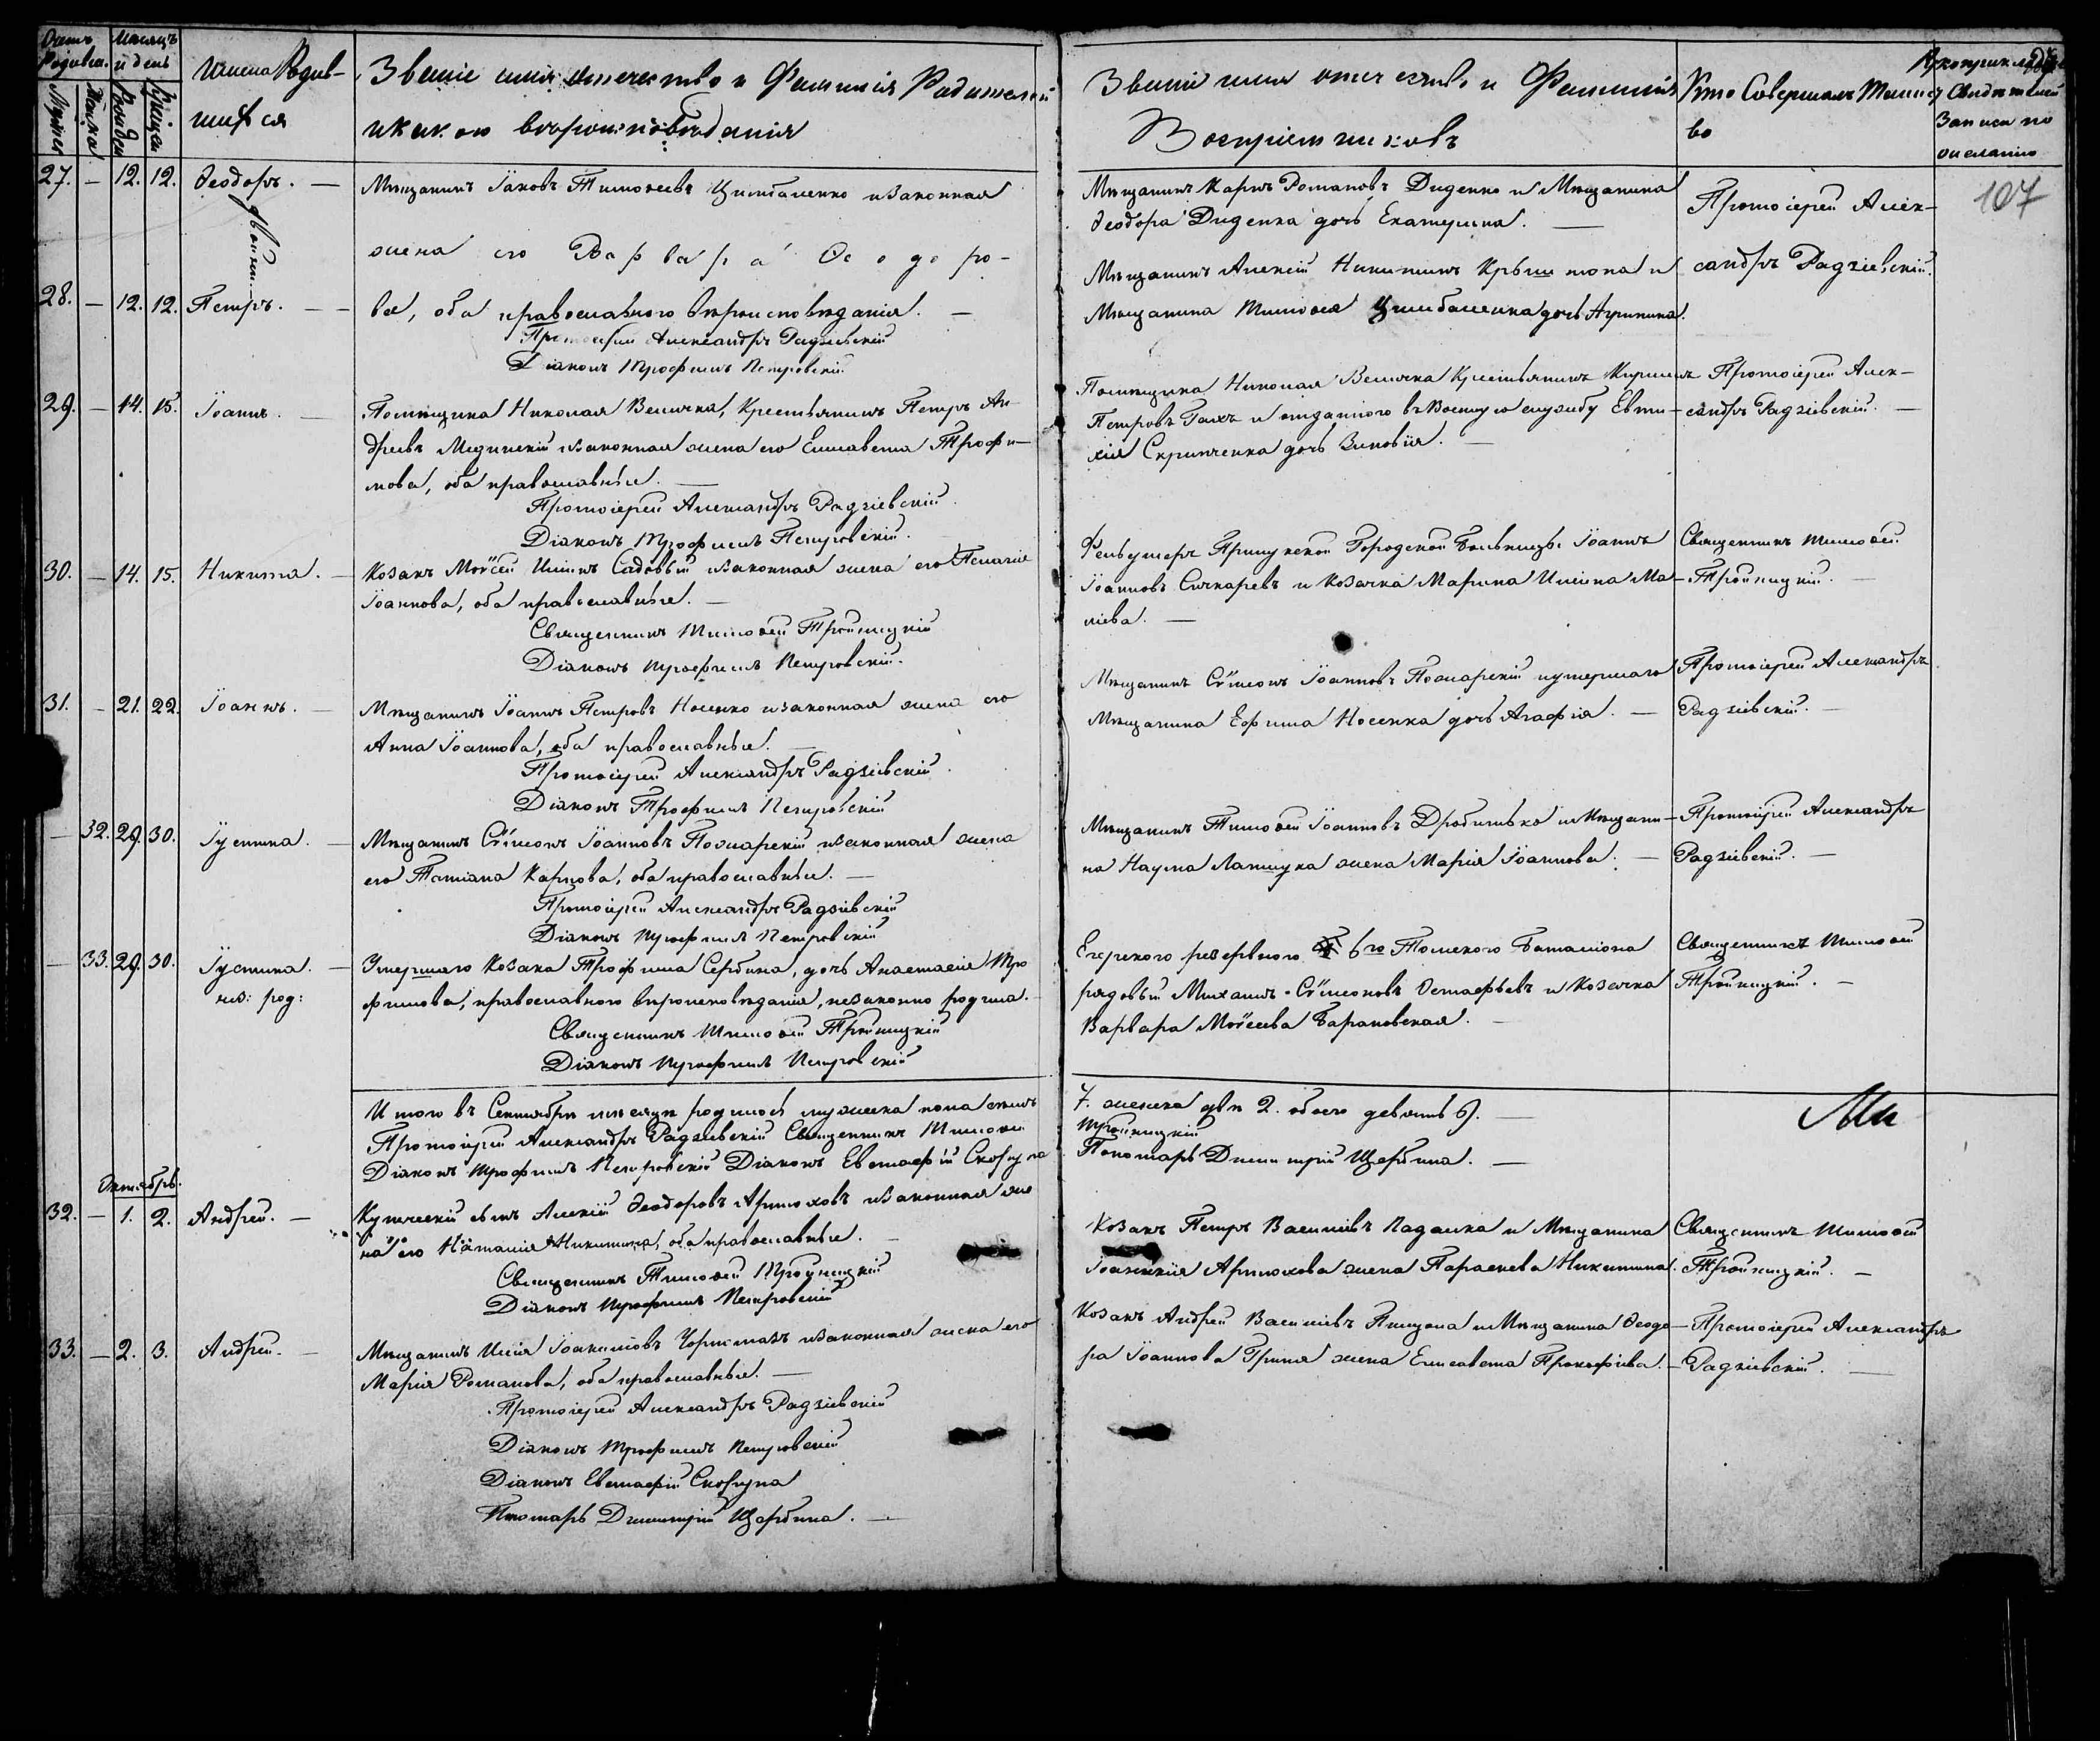 Счетъ Родивш. Мѣсяцъ и день
Имена Родив-
шихся
Званіе имя отечество и Фамилія Родителей
и какого вѣроисповѣданія
Званіе имя отечество и Фамилія
Воспріемниковъ
Кто Совершалъ Таинст
во
Рукоприкладство
Свидѣтелей
Записи по
желанію
107
27. — 12. 12. Ѳеодоръ. —
Мѣщанинъ Іаковъ Тимоѳеевъ Цимбаленко и законная
жена его Варвара Ѳеодоро-
28. — 12. 12. Петръ. —
ва, оба православного вѣроисповѣданія. —
Протоіерей Александръ Радзіевскій
Діаконъ Трофимъ Петровскій
Мѣщанинъ Карпъ Романовъ Диденко и Мѣщанина
Ѳеодора Диденка дочь Екатерина. —
Мѣщанинъ Алексій Никитинъ и
Мѣщанина Тимоѳея Цимбаленка дочь
Протоіерей Алек-
сандръ Радзіевскій.
29. — 14. 15. Іоаннъ. —
Помѣщика Николая Величка, Крестьянинъ Петръ Ан-
дреевъ Мединскій и законная жена его Елисавета Трофи-
мова, оба православные. —
Протоіерей Александръ Радзіевскій.
Діаконъ Трофимъ Петровскій.
Помѣщика Николая Величка Крестьянинъ Кириллъ
Петровъ и отданного въ Военную службу Евти-
хія Скрипченка дочь Зиновія. —
Протоіерей Алек-
сандръ Радзіевскій. —
30. — 14. 15. Никита. —
Козакъ Моѵсей Иліинъ Садовый и законная жена его Пелагія
Іоаннова, оба православные. —
Священникъ Тимоѳей Тройницкій
Діаконъ Трофимъ Петровскій.
Фельдшеръ Прилукской Городской Больницы Іоаннъ
Іоанновъ Сичкаревъ и Козачка Марина Иліина Ма-
лѣева. —
Священникъ Тимоѳей
Тройницкій. —
31. — 21. 22. Іоаннъ. —
Мѣщанинъ Іоаннъ Петровъ Носенко и законная жена его
Анна Іоаннова, оба православные. —
Протоіерей Александръ Радзіевскій.
Діаконъ Трофимъ Петровскій
Мѣщанинъ Сѵмеонъ Іоанновъ Пожарскій и умершаго
Мѣщанина Ефима Носенка дочь Агафія. —
Протоіерей Александръ
Радзіевскій. —
— 32. 29. 30. Іустина. —
Мѣщанинъ Сѵмеонъ Іоанновъ Пожарскій и законная жена
его Татіана Карпова, оба православные. —
Протоіерей Александръ Радзіевскій
Діаконъ Трофимъ Петровскій
Мѣщанинъ Тимоѳей Іоанновъ Дробитько и Мѣщани-
на Наума Лапшука жена Марія Іоаннова. —
Протоіерей Александръ
Радзіевскій. —
— 33. 29. 30. Іустина. —
нез: род:
Умершаго Козака Трофима Сербина, дочь Анастасія Тро
фимова, православного вѣроисповѣданія, незаконно родила.
Священникъ Тимоѳей Тройницкій
Діаконъ Трофимъ Петровскій
Егерского резервного 6го Томского Баталіона
рядовый Михаилъ Сѵмеоновъ Остафьевъ и Козачка
Варвара Моѵсеева Барановская. —
Священникъ Тимоѳей
Тройницкій. —
Итого въ Сентябрѣ мѣсяцѣ родилось мужеска пола семь
7. женска двѣ 2. обоего девять 9. —
Протоіерей Александръ Радзіевскій Священникъ Тимоѳей
Тройницкій
Діаконъ Трофимъ Петровскій Діаконъ Евстафій Скорупа
Пономарь Димитрій Щербина. —
Октябрь.
32. — 1. 2. Андрей. —
Купеческій сынъ Алексій Ѳеодоровъ Арнюховъ и законная же
на его Наталія Никитина, оба православные. —
Священникъ Тимоѳей Тройницкій
Діаконъ Трофимъ Петровскій
Козакъ Петръ Василіевъ Падалка и Мѣщанина
Іоанникія Арнюхова жена Параскева Никитина.
Священникъ Тимоѳей
Тройницкій. —
33. — 2. 3. Андрей. —
Мѣщанинъ Илія Іоакимовъ и законная жена его
Марія Романова, оба православные. —
Протоіерей Александръ Радзіевскій
Діаконъ Трофимъ Петровскій
Діаконъ Евстафій Скорупа
Пономарь Димитрій Щербина. —
Козакъ Андрей Василіевъ и Мѣщанина Ѳеодо-
ра Іоаннова жена Елисавета Прокофіева. —
Протоіерей Александръ
Радзіевскій. —